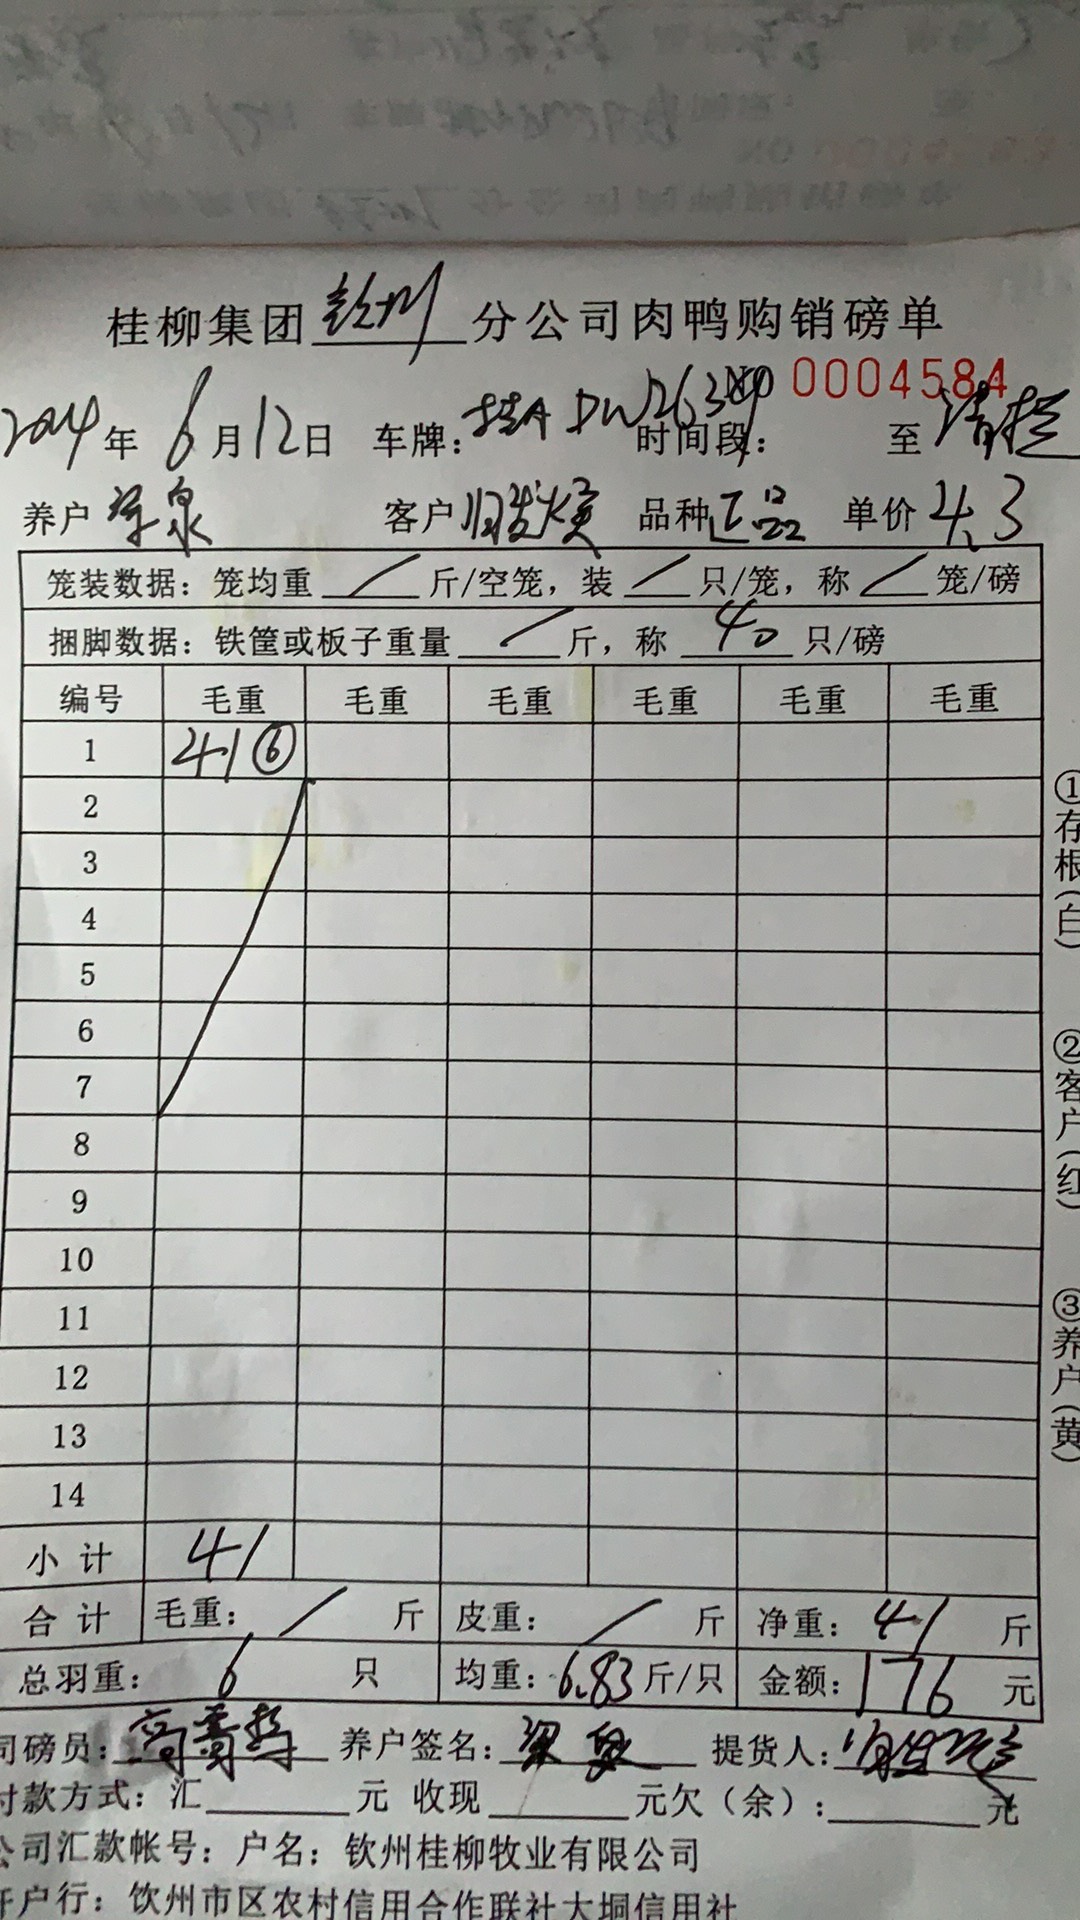 桂柳集团 分公司肉鸭购销磅单
0004584
2024年 6月12日 车牌:桂A DW26380 时间段: 至 清栏
养户 泉 客户 品种 正品 单价 4.3
笼装数据:笼均重 / 斤/空笼,装 / 只/笼,称 / 笼/磅
捆脚数据:铁筐或板子重量 / 斤,称 40 只/磅
编号 毛重 毛重 毛重 毛重 毛重 毛重
1 41⑥
2
3
4
5
6
7
8
9
10
11
12
13
14
小计 41
合计 毛重: / 斤 皮重: / 斤 净重: 41 斤
总羽重: 6 只 均重: 6.83 斤/只 金额: 176 元
司磅员: 养户签名: 梁 提货人:
付款方式:汇 元 收现 元欠(余): 元
公司汇款帐号:户名:钦州桂柳牧业有限公司
开户行:钦州市区农村信用合作联社大垌信用社
①存根(白)
②客户(红)
③养户(黄)